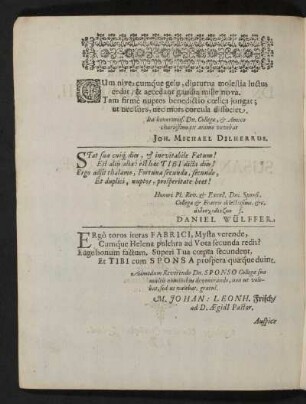 CUm nive cumque gelu, diuturna molestia luctus
endat, & accedant gaudia mille nova.
Tam firme nuptos benedictio conjungat;
ut nec lites, nec mors corcula dissociet,
Ita honoratiss. Dn. Collegæ, & Amico
charissimo ex animo vovebat
JOH. MICHAEL DILHERRUS.
STat sua cuiq; dies, & inevitabile Fatum!
Est dies alba! TIBI dicta dies!
Ergo adsit thalamo, Fortuna secunda, secundo,
Et duplici, nuptos, prosperitate beet!
Honori Pl. Rev. & Excell. Dni. Sponsi,
Collegæ & Fratris dilectissimi, &c.
DANIEL WÜLFFER.
ERgò toros iteras FABRICI, Mysta verende,
Cumque Helena pulchra ad Vota secunda redis?
Superi Tua cœpta secundent,
Et TIBI cum SPONSA prospera quæque duint.
Admodum Reverendo Dn. SPONSO Collegæ suo
multis nominibus devenerando, non ut
sed ut gratul.
M. JOHAN: LEONH. Frisch/
ad D. Ægidii Pastor.
Auspice